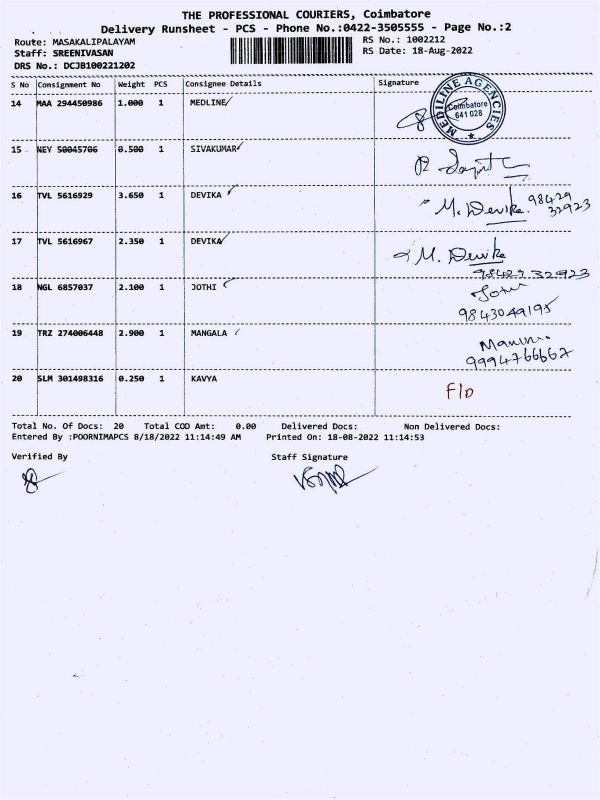 THE PROFESSIONAL COURIERS, Coimbatore
Delivery Runsheet - PCS - Phone No.:0422-3505555 - Page No.:2
Route: MASAKALIPALAYAM
RS No.: 1002212
Staff: SREENIVASAN
RS Date: 18-Aug-2022
DRS No.: DCJB100221202
S No Consignment No Weight PCS Consignee Details Signature
14 MAA 294450986 1.000 1 MEDLINE
MEDILINE AGENCIES
Coimbatore
641 028
15 NEY 50045706 0.500 1 SIVAKUMAR
16 TVL 5616929 3.650 1 DEVIKA M. Devika. 98429
32923
17 TVL 5616967 2.350 1 DEVIKA M. Devika
98429 32923
18 NGL 6857037 2.100 1 JOTHI
9843049195
19 TRZ 274006448 2.900 1 MANGALA
9994766667
20 SLM 301498316 0.250 1 KAVYA F/D
Total No. Of Docs: 20 Total COD Amt: 0.00 Delivered Docs: Non Delivered Docs:
Entered By :POORNIMAPCS 8/18/2022 11:14:49 AM Printed On: 18-08-2022 11:14:53
Verified By Staff Signature